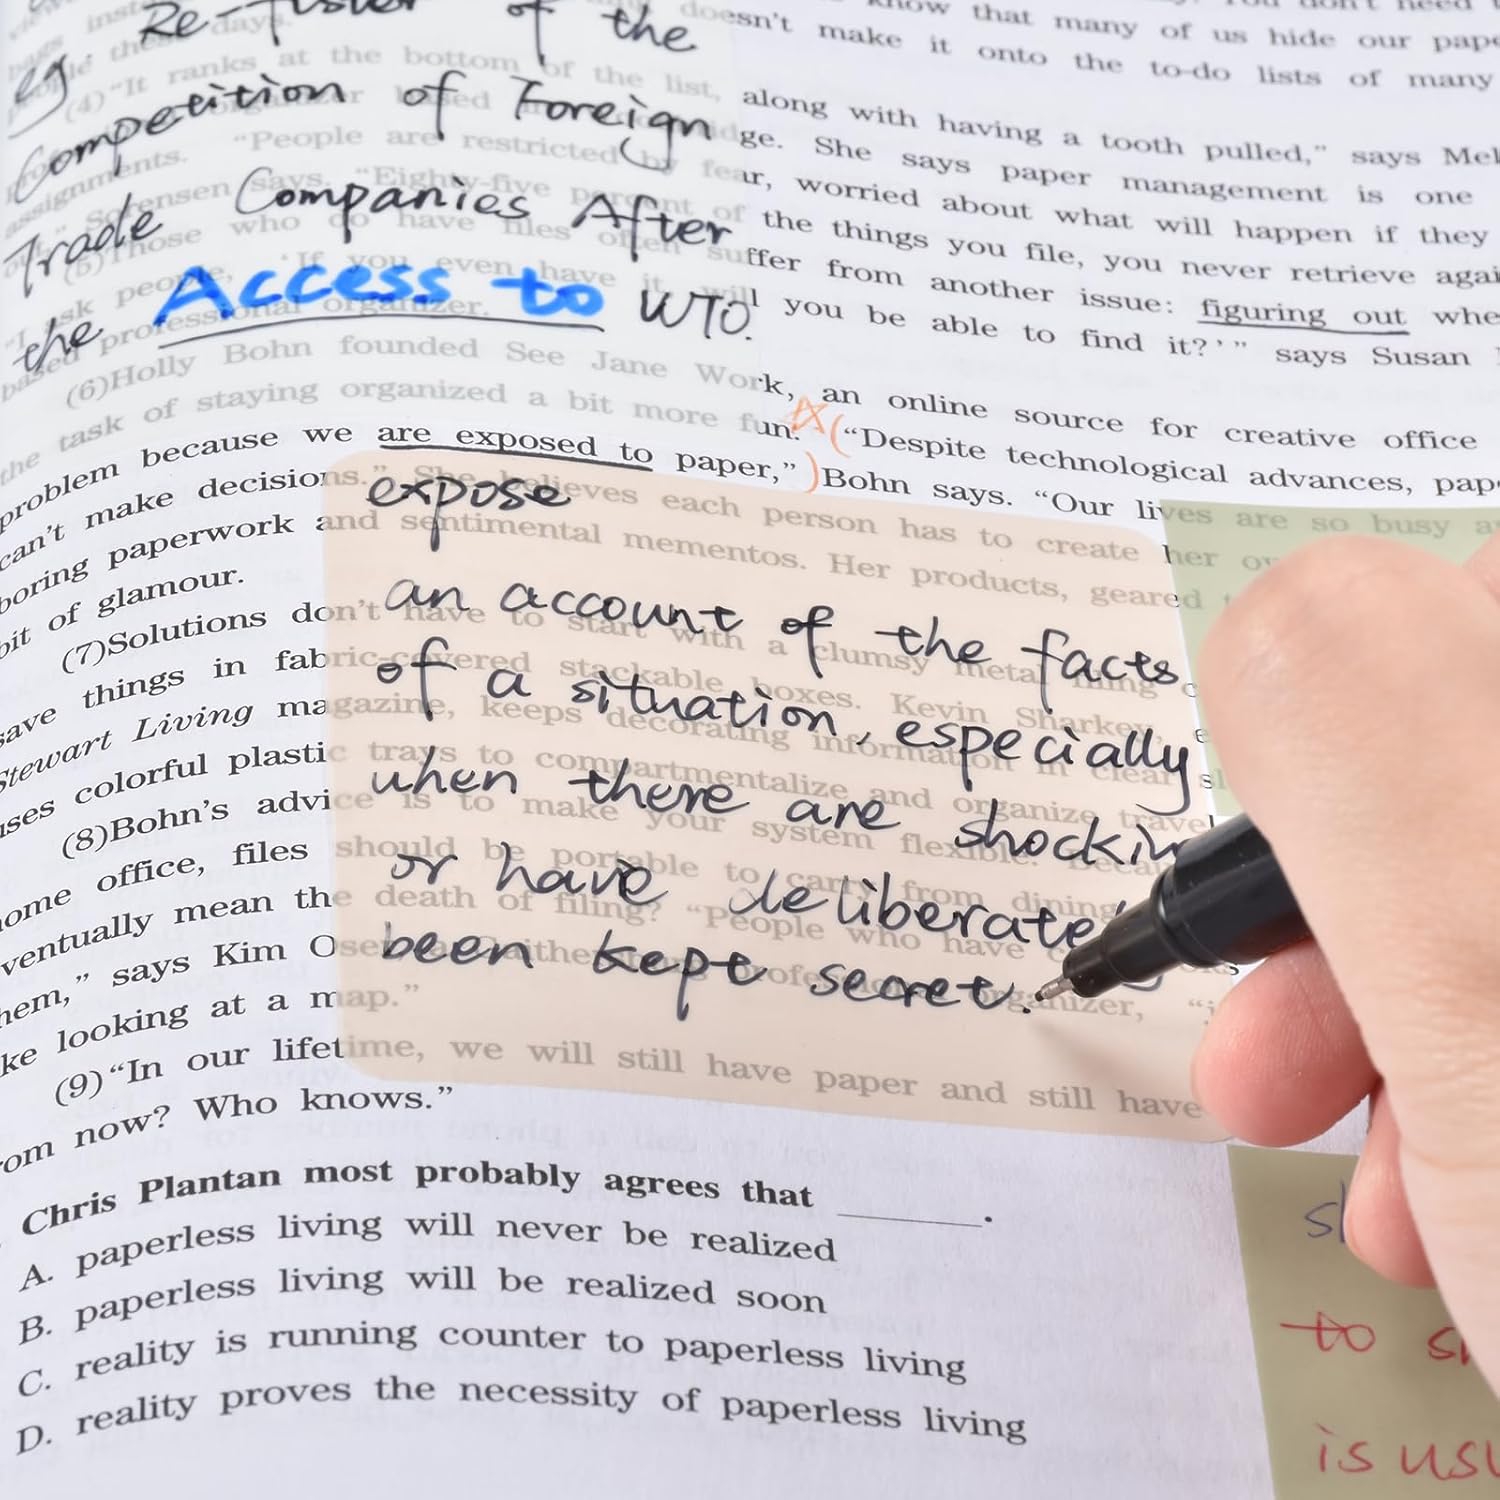 know that many of us hide our
doesn't make it onto the to-do lists of many
eg of the
Competition of Foreign
Trade Companies After
the Access to WTO.
(4)"It ranks at the bottom of the list, along with having a tooth pulled," says
"People are restricted by fear, worried about what will happen if they
assignments.
ge. She says paper management is one
Sorensen says. "Eighty-five percent of the things you file, you never retrieve
(5)Those who do have files often suffer from another issue: figuring out
people, 'If you even have it, will you be able to find it?'" says Susan
based professional organizer.
(6)Holly Bohn founded See Jane Work, an online source for creative office
the task of staying organized a bit more fun. "Despite technological advances,
problem because we are exposed to paper," Bohn says. "Our lives are so busy
can't make decisions." She believes each person has to create her
boring paperwork and sentimental mementos. Her products, geared
bit of glamour.
(7)Solutions don't have to start with a clumsy metal filing
save things in fabric-covered stackable boxes. Kevin Sharkey,
Stewart Living magazine, keeps decorating information in clear
uses colorful plastic trays to compartmentalize and organize travel
(8)Bohn's advice is to make your system flexible.
home office, files should be portable to carry from dining
eventually mean the death of filing? "People who have
them," says Kim professional organizer,
like looking at a map."
(9)"In our lifetime, we will still have paper and still have
from now? Who knows."
expose
an account of the facts
of a situation, especially
when there are
or have
been kept secret.
Chris Plantan most probably agrees that ______.
A. paperless living will never be realized
B. paperless living will be realized soon
C. reality is running counter to paperless living
D. reality proves the necessity of paperless living
to
is